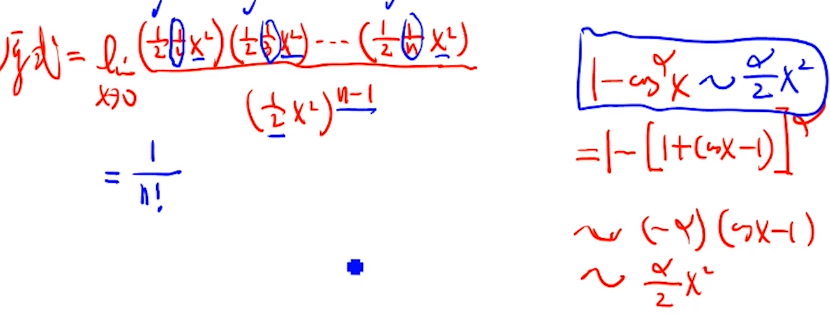 原式 = lim_{x→0} (1/2 · 1/2 x²)(1/2 · 1/3 x²) ··· (1/2 · 1/n x²) / (1/2 x²)^{n-1}
= 1/n!
1 - cos^α x ~ α/2 x²
= 1 - [1 + (cos x - 1)]^α
~ (-α)(cos x - 1)
~ α/2 x²